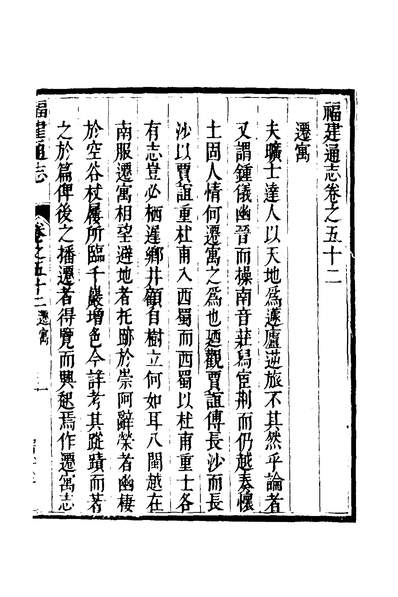 福建通志卷之五十二
遷寓
夫曠士達人以天地爲蘧廬逆旅不其然乎論者
又謂鍾儀幽晉而操南音莊舄宦荆而仍越奏懷
土固人情何遷寓之爲也廼觀賈誼傅長沙而長
沙以賈誼重杜甫入西蜀而西蜀以杜甫重士各
有志豈必栖遲鄉井顧自樹立何如耳八閩越在
南服遷寓相望避地者托跡於崇阿辭榮者幽棲
於空谷杖屨所臨千巖增色今詳考其蹤蹟而著
之於篇俾後之播遷者得覽而興起焉作遷寓志
福建通志
卷之五十二 遷寓 一